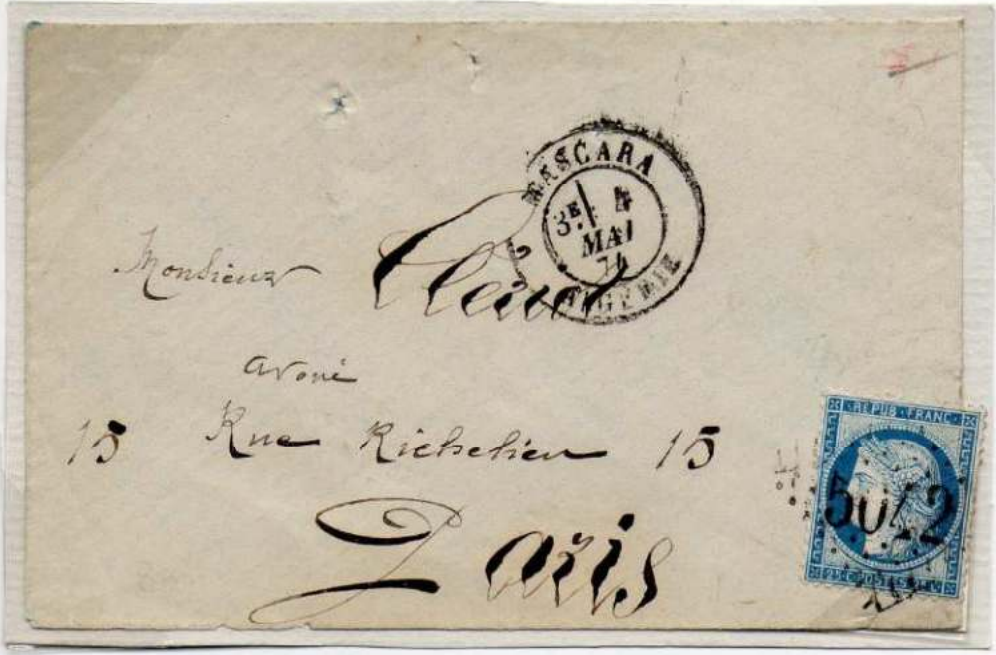 MASCARA
3E 4
MAI
74
ALGERIE
Monsieur
avoué
15 Rue Richelieu 15
Paris
REPUB FRANC
5042
25 C POSTES 25 C